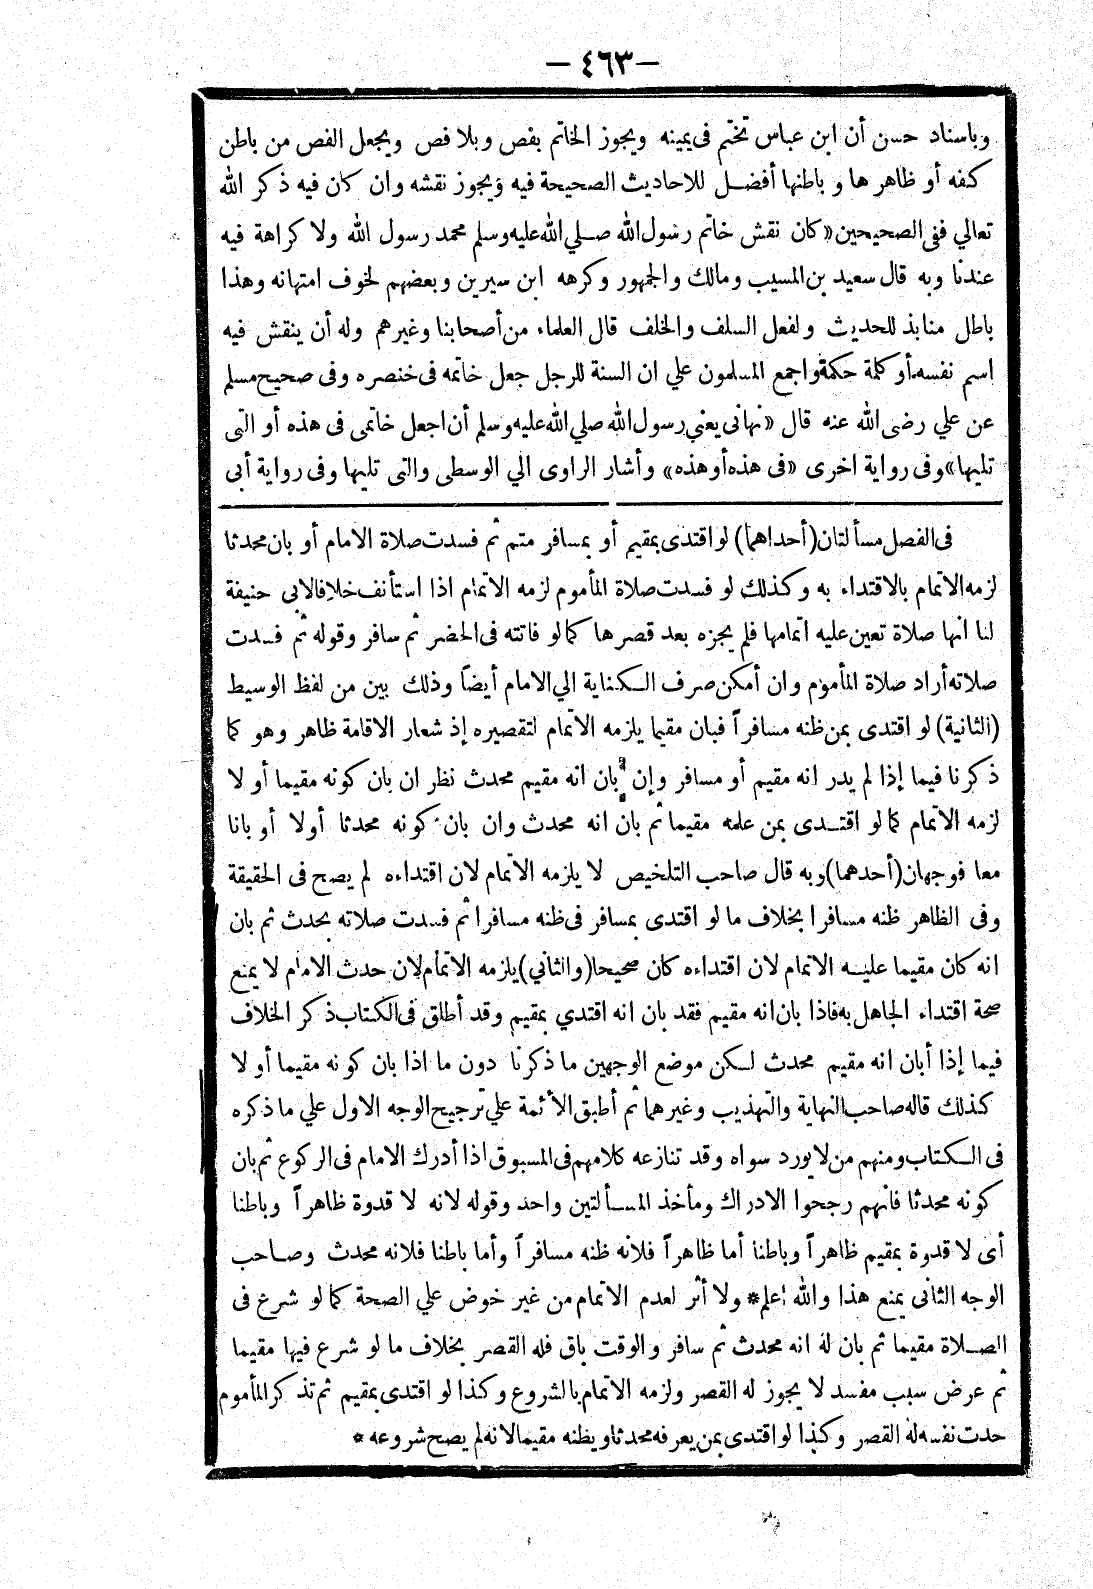 — ٤٦٣ —
وباسناد حسن أن ابن عباس تختم فى يمينه ويجوز الخاتم بفص وبلا فص ويجعل الفص من باطن
كفه أو ظاهر ها وباطنها أفضل للاحاديث الصحيحة فيه ويجوز نقشه وان كان فيه ذكر الله
تعالي ففى الصحيحين «كان نقش خاتم رسول الله صلي الله عليه وسلم محمد رسول الله ولا كراهة فيه
عندنا وبه قال سعيد بن المسيب ومالك والجمهور وكرهه ابن سيرين وبعضهم لخوف امتهانه وهذا
باطل منابذ للحديث ولفعل السلف والخلف قال العلماء من أصحابنا وغيرهم وله أن ينقش فيه
اسم نفسه أو كلمة حكمة واجمع المسلمون علي ان السنة للرجل جعل خاتمه فى خنصره وفى صحيح مسلم
عن علي رضى الله عنه قال «نهانى يعني رسول الله صلي الله عليه وسلم أن اجعل خاتمى فى هذه أو التى
تليها» وفى رواية اخرى «فى هذه أو هذه» وأشار الراوى الي الوسطى والتى تليها وفى رواية أبى
فى الفصل مسألتان (أحداهما) لو اقتدى بمقيم أو بمسافر متم ثم فسدت صلاة الامام أو بان محدثا
لزمه الاتمام بالاقتداء به وكذلك لو فسدت صلاة المأموم لزمه الاتمام اذا استأنف خلافا لابى حنيفة
لنا انها صلاة تعين عليه اتمامها فلم يجزه بعد قصرها كما لو فاتته فى الحضر ثم سافر وقوله ثم فسدت
صلاته أراد صلاة المأموم وان أمكن صرف الكناية الي الامام أيضاً وذلك بين من لفظ الوسيط
(الثانية) لو اقتدى بمن ظنه مسافراً فبان مقيما يلزمه الاتمام لتقصيره إذ شعار الاقامة ظاهر وهو كما
ذكرنا فيما إذا لم يدر انه مقيم أو مسافر وإن بان انه مقيم محدث نظر ان بان كونه مقيما أو لا
لزمه الاتمام كما لو اقتدى بمن علمه مقيما ثم بان انه محدث وان بان كونه محدثا أولا أو بانا
معا فوجهان (أحدهما) وبه قال صاحب التلخيص لا يلزمه الاتمام لان اقتداءه لم يصح فى الحقيقة
وفى الظاهر ظنه مسافرا بخلاف ما لو اقتدى بمسافر فى ظنه مسافرا ثم فسدت صلاته بحدث ثم بان
انه كان مقيما عليه الاتمام لان اقتداءه كان صحيحا (والثاني) يلزمه الاتمام لان حدث الامام لا يمنع
صحة اقتداء الجاهل به فاذا بان انه مقيم فقد بان انه اقتدي بمقيم وقد أطلق فى الكتاب ذكر الخلاف
فيما إذا أبان انه مقيم محدث لكن موضع الوجهين ما ذكرنا دون ما اذا بان كونه مقيما أو لا
كذلك قاله صاحب النهاية والتهذيب وغيرهما ثم أطبق الأئمة علي ترجيح الوجه الاول علي ما ذكره
فى الكتاب ومنهم من لا يورد سواه وقد تنازعه كلامهم فى المسبوق اذا أدرك الامام فى الركوع ثم بان
كونه محدثا فانهم رجحوا الادراك ومأخذ المسألتين واحد وقوله لانه لا قدوة ظاهراً وباطنا
أى لا قدوة بمقيم ظاهراً وباطنا أما ظاهراً فلانه ظنه مسافراً وأما باطنا فلانه محدث وصاحب
الوجه الثانى يمنع هذا والله اعلم* ولا أثر لعدم الاتمام من غير خوض علي الصحة كما لو شرع فى
الصلاة مقيما ثم بان له انه محدث ثم سافر والوقت باق فله القصر بخلاف ما لو شرع فيها مقيما
ثم عرض سبب مفسد لا يجوز له القصر ولزمه الاتمام بالشروع وكذا لو اقتدى بمقيم ثم تذكر المأموم
حدث نفسه له القصر وكذا لو اقتدى بمن يعرفه محدثا ويظنه مقيما لانه لم يصح شروعه *